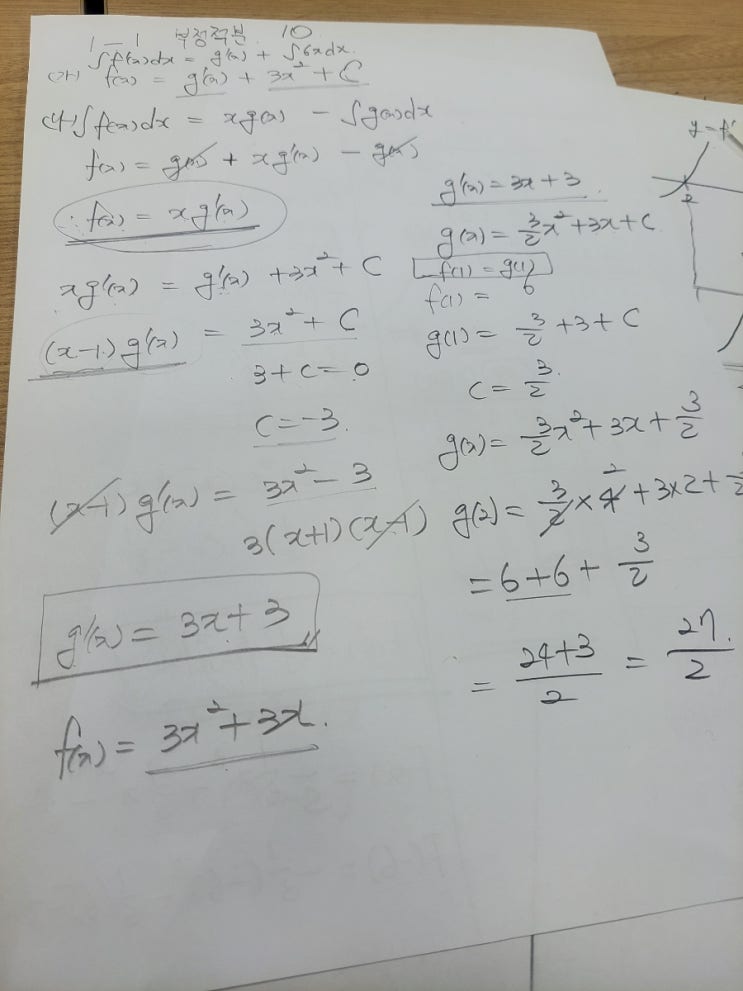 1-1 부정적분 10
∫f(x)dx = g(x) + ∫6xdx.
(가) f(x) = g'(x) + 3x² + C
(나) ∫f(x)dx = xg(x) - ∫g(x)dx
f(x) = g(x) + xg'(x) - g(x)
∴ f(x) = xg'(x)
xg'(x) = g'(x) + 3x² + C
(x-1)g'(x) = 3x² + C
3 + C = 0
C = -3.
(x-1)g'(x) = 3x² - 3
3(x+1)(x-1)
g'(x) = 3x + 3
f(x) = 3x² + 3x.
g'(x) = 3x + 3
g(x) = 3/2x² + 3x + C
f(1) = g(1)
f(1) = 6
g(1) = 3/2 + 3 + C
C = 3/2.
g(x) = 3/2x² + 3x + 3/2
g(2) = 3/2 × 4 2 + 3×2 +
= 6 + 6 + 3/2
= 24+3/2 = 27/2.
y = f'
2